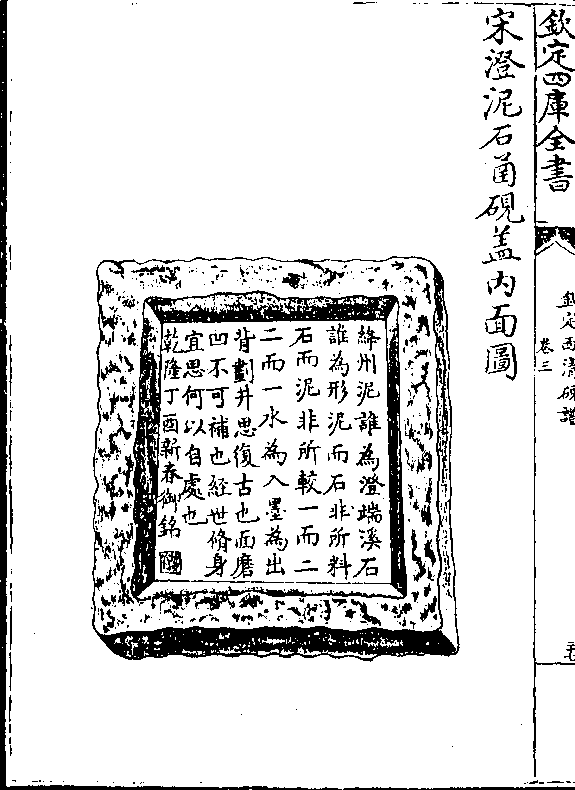 欽定四庫全書
欽定西清硯譜
卷三
宋澄泥石函硯蓋内面圖
絳州泥誰為澄端溪石
誰為形泥而石非所料
石而泥非所較一而二
二而一水為入墨為出
背劃井思復古也面磨
凹不可補也經世脩身
宜思何以自處也
乾隆丁酉新春御銘